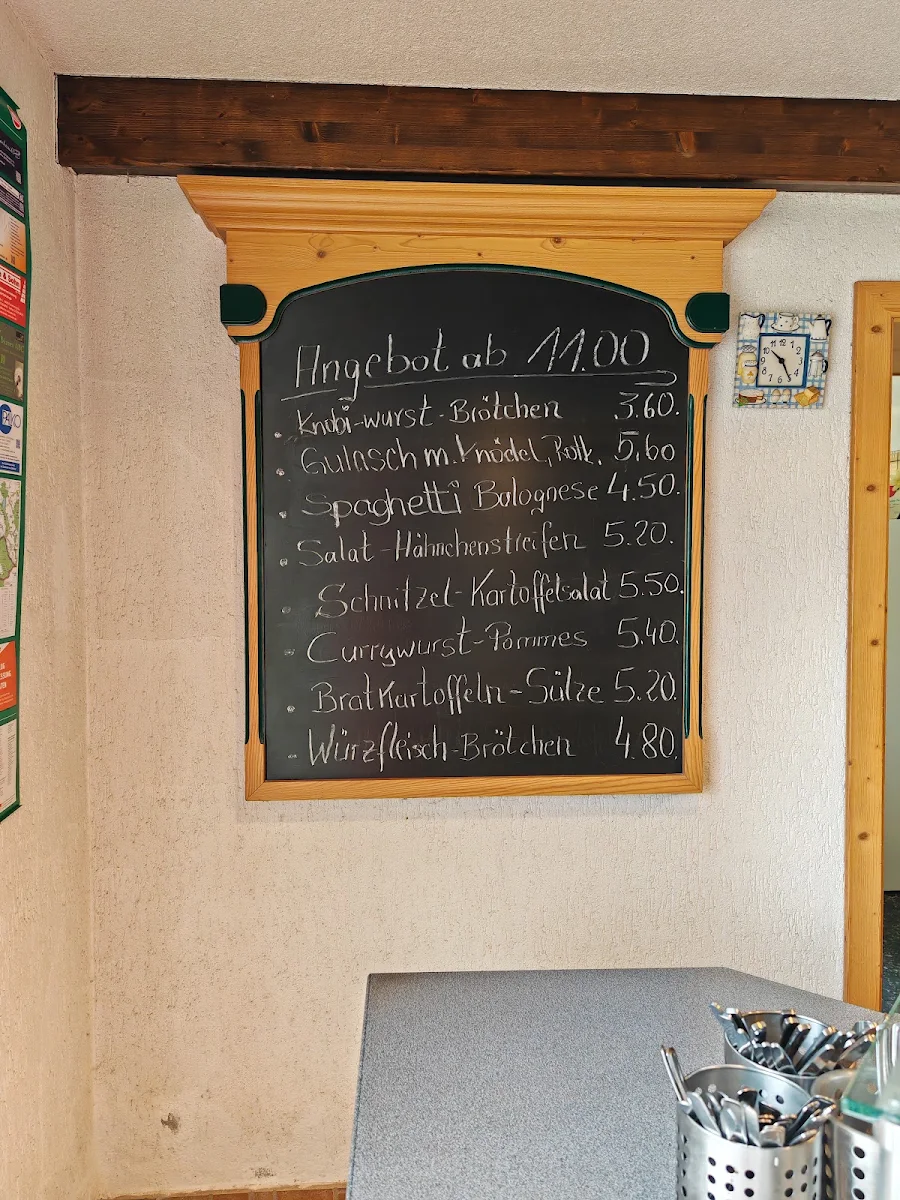 Angebot ab 11.00
Knobi-wurst-Brötchen 3.60.
Gulasch m. Knödel, Rotk. 5,60
Spaghetti Bolognese 4.50.
Salat-Hähnchenstreifen 5.20.
Schnitzel-Kartoffelsalat 5.50.
Currywurst-Pommes 5.40.
Bratkartoffeln-Sülze 5.20.
Würzfleisch-Brötchen 4.80,
12 1 2 3 4 5 6 7 8 9 10 11